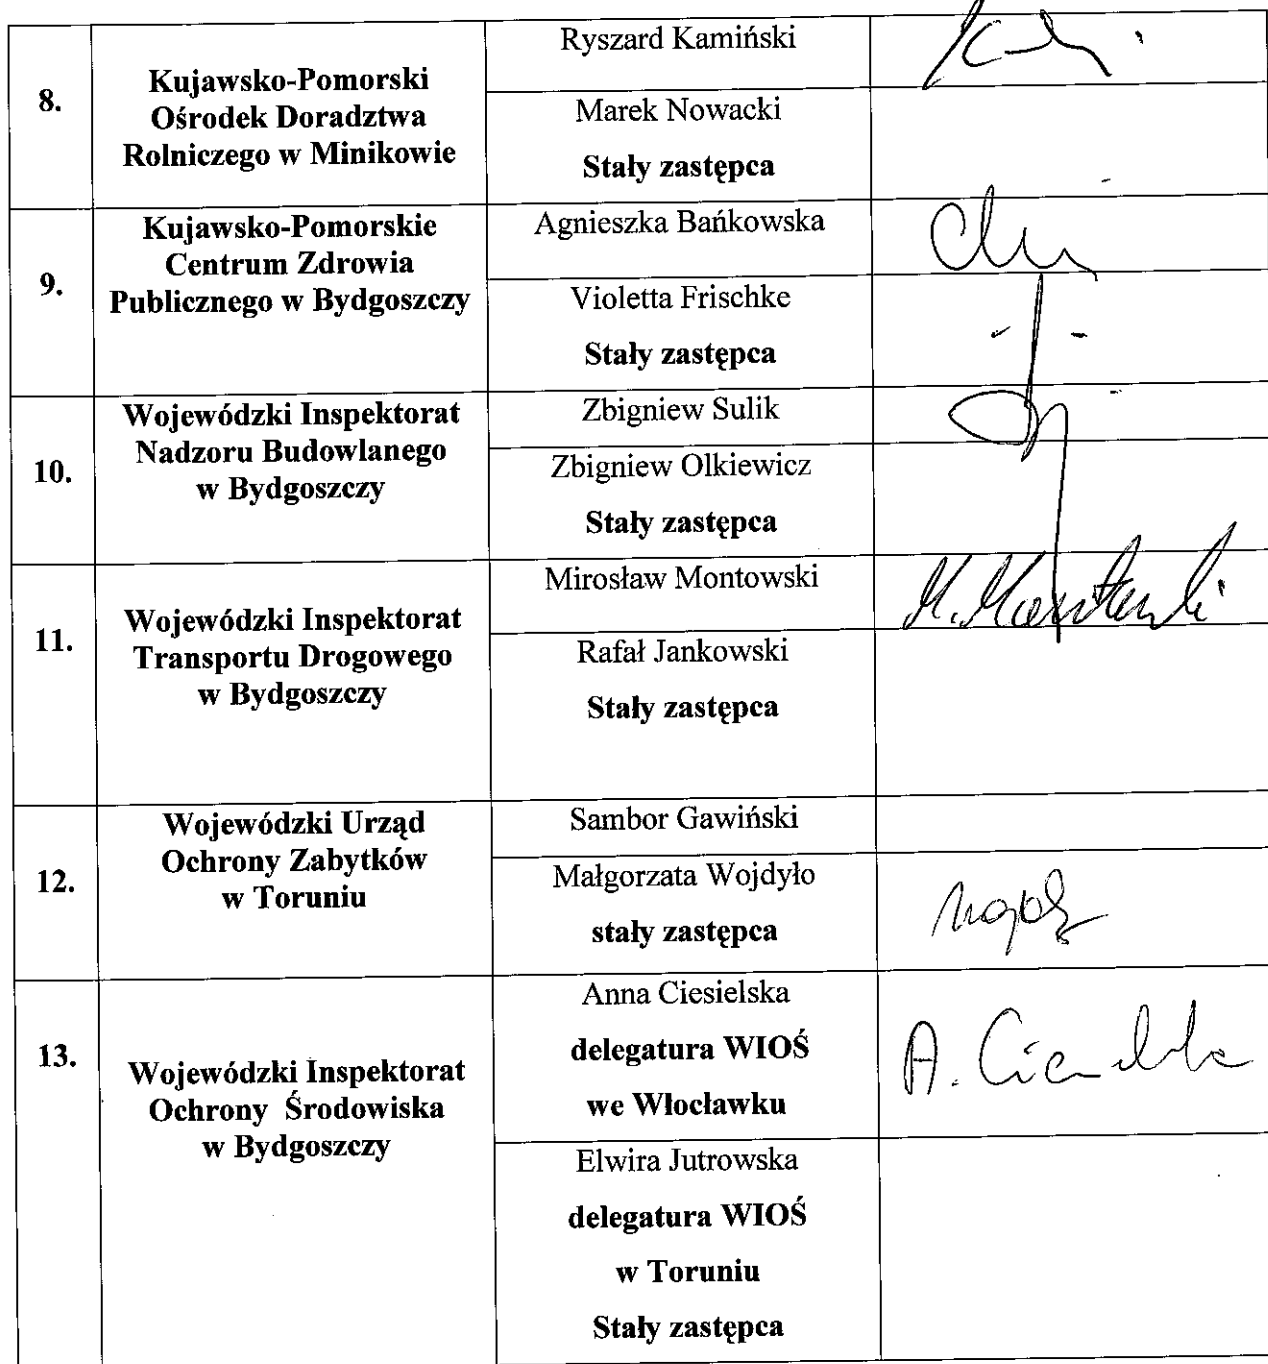 8.
Kujawsko-Pomorski
Ośrodek Doradztwa
Rolniczego w Minikowie
Ryszard Kamiński
Marek Nowacki
Stały zastępca
9.
Kujawsko-Pomorskie
Centrum Zdrowia
Publicznego w Bydgoszczy
Agnieszka Bańkowska
Violetta Frischke
Stały zastępca
10.
Wojewódzki Inspektorat
Nadzoru Budowlanego
w Bydgoszczy
Zbigniew Sulik
Zbigniew Olkiewicz
Stały zastępca
11.
Wojewódzki Inspektorat
Transportu Drogowego
w Bydgoszczy
Mirosław Montowski
M. Montowski
Rafał Jankowski
Stały zastępca
12.
Wojewódzki Urząd
Ochrony Zabytków
w Toruniu
Sambor Gawiński
Małgorzata Wojdyło
stały zastępca
13.
Wojewódzki Inspektorat
Ochrony Środowiska
w Bydgoszczy
Anna Ciesielska
delegatura WIOŚ
we Włocławku
A. Ciesielska
Elwira Jutrowska
delegatura WIOŚ
w Toruniu
Stały zastępca